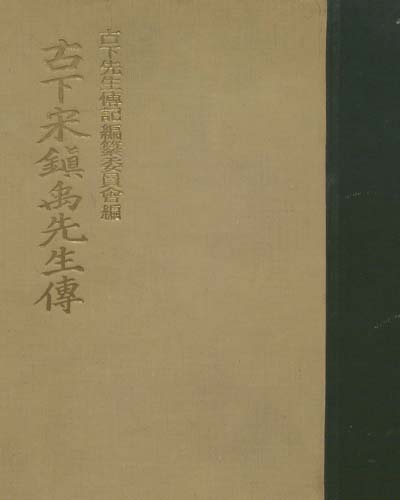 古下先生傳記編纂委員會編
古下宋鎭禹先生傳